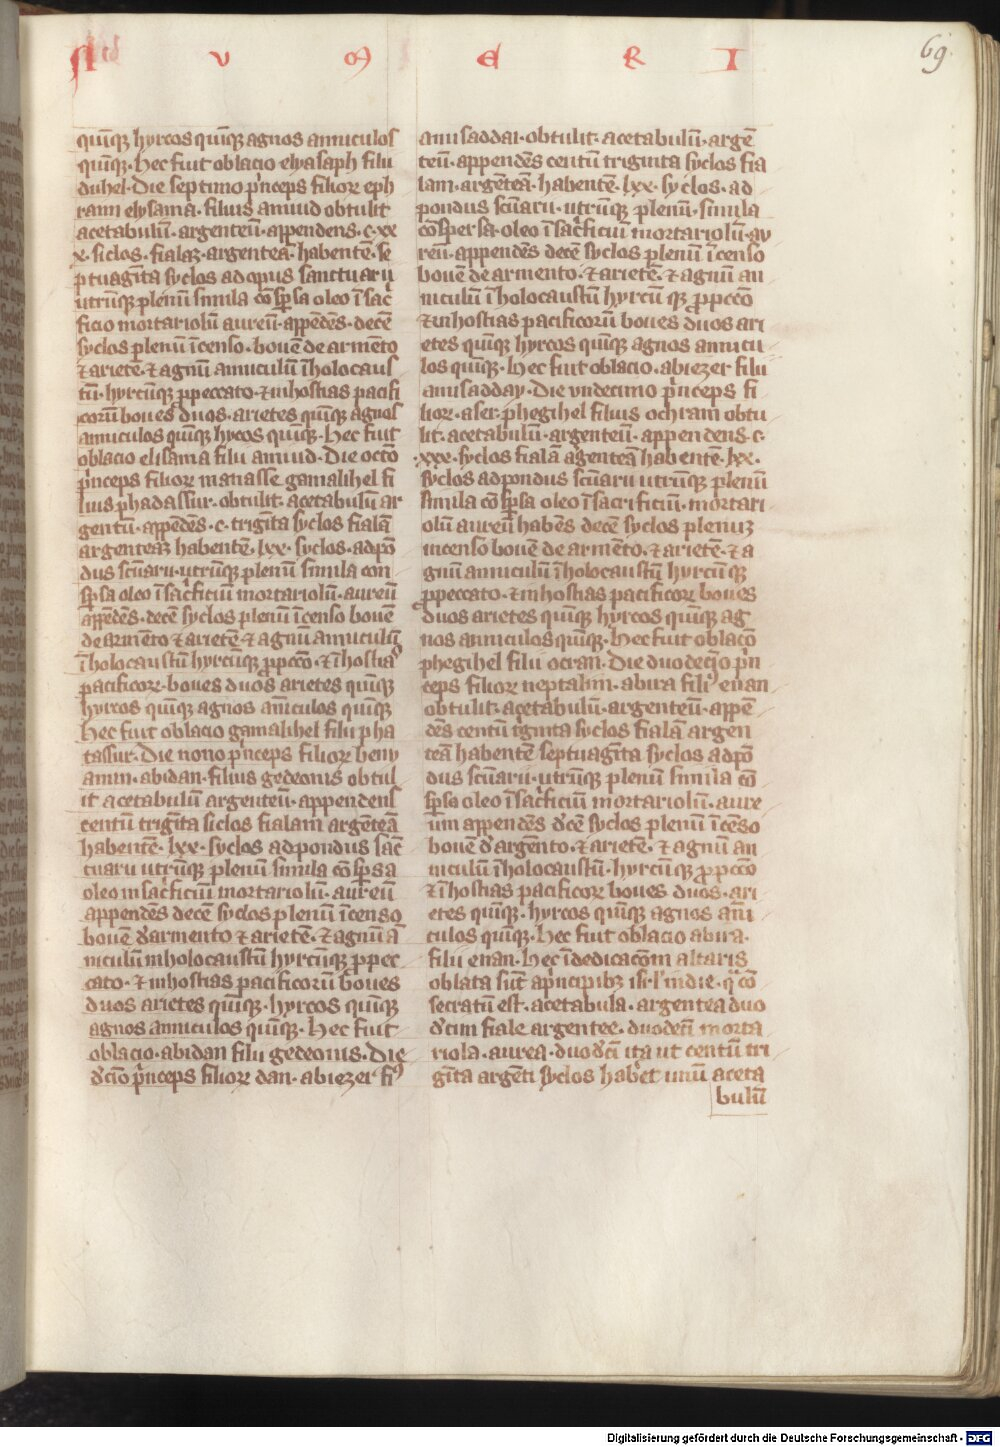 N V M E R I
69
quīqꝫ hyrcos quīqꝫ agnos anniculos
quīqꝫ· Hec fuit oblacio elyasaph filii
duhel· Die septimo p̄nceps filioꝝ eph
raim elysama· filius amiud obtulit
acetabulū· argenteū· appendens· c·xx
x· siclos· fialaꝫ· argenteā· habentē· se
ptuagīta syclos ad opus sanctuarii
utrūqꝫ plenū simila cōsp̄sa oleo ī sac
ficio mortariolū aureū· appēdēs· decē
syclos plenū īcenso· bouē de armēto
⁊ arietē· ⁊ agnū anniculū ī holocaus
tū· hyrcūqꝫ p peccato· ⁊ in hostias pacifi
corū boues duos· arietes quīqꝫ agnos
anniculos quīqꝫ hycos quīqꝫ· Hec fuit
oblacio elisama filii amiud· Die octō
p̄nceps filioꝝ manasse gamalihel fi
lius phadassur· obtulit· acetabulū ar
gentū· appēdēs· c· trigīta syclos fialā
argenteaꝫ habentē· lxx· syclos· ad pō
dus scūarii· utrūqꝫ plenū simila con
sp̄sa oleo ī sac̄ficiū mortariolū· aureū
appēdēs· decē syclos plenū īcenso bouē
de armēto ⁊ arietē· ⁊ agnū anniculū
ī holocaustū hyrcūqꝫ p pccō· ⁊ ī hostias
pacificoꝝ· boues duos arietes quīqꝫ
hyrcos quīqꝫ agnos anīculos quīqꝫ
Hec fuit oblacio gamalihel filii pha
tassur· Die nono p̄nceps filioꝝ beny
amin· abidan· filius gedeonis obtul
it acetabulū argenteū· appendens
centū trigīta siclos fialam argēteā
habentē· lxx· syclos ad pondus sāc
tuarii utrūqꝫ plenū simila cōsp̄sa
oleo in sac̄ficiū mortariolū· aureū
appendēs decē syclos plenū īcenso
bouē d̄armento ⁊ arietē· ⁊ agnū ā
niculū in holocaustū hyrcūqꝫ p pec
cato· ⁊ in hostias pacificorū boues
duos arietes quīqꝫ· hyrcos quīqꝫ
agnos anniculos quīqꝫ· Hec fuit
oblacio· abidan filii gedeonis· Die
d̄cīo p̄nceps filioꝝ dan· abiezer fiꝰ
ami saddai· obtulit· acetabulū· argē
teū· appendēs centū triginta syclos fia
lam· argēteā· habentē· lxx· syclos· ad
pondus scūarii· utrūqꝫ plenū· simila
cōspersa· oleo ī sac̄ficiū mortariolū· au
reū· appendēs decē syclos plenū īcenso
bouē de armento· ⁊ arietē· ⁊ agnū an
niculū ī holocaustū hyrcū qꝫ p pccō
⁊ in hostias pacificorū boues duos ari
etes quīqꝫ hyrcos quīqꝫ agnos annicu
los quīqꝫ· Hec fuit oblacio· abiezer filii
amisadday· Die vndecimo p̄nceps fi
lioꝝ· aser· phegihel filius ochram obtu
lit· acetabulū· argenteū· appendens· c·
·xxx· syclos fialā agenteā habentē· lxx·
syclos ad pondus scūarii utrūqꝫ plenū
simila cōsp̄sa oleo ī sacrificiū· mortari
olū aureū habēs decē syclos plenuꝫ
incenso bouē de armēto· ⁊ arietē· ⁊ a
gnū anniculū ī holocaustū hyrcū qꝫ
p peccato· ⁊ in hostias pacificoꝝ boues
duos arietes quīqꝫ hyrcos quīqꝫ ag
nos anniculos quīqꝫ· Hec fuit oblacō
phegihel filii ocran· Die duodecīo p̄n
ceps filioꝝ neptalim· abira filiꝰ enan
obtulit· acetabulū· argenteū· appē
dēs centū tginta syclos fialā argen
teā habentē septuagīta syclos ad pō
dus scūarii· utrūqꝫ plenū simila cō
sp̄sa oleo ī sac̄ficiū mortariolū· aure
um appendēs d̄cē syclos plenū īcēso
bouē d̄ argēto· ⁊ arietē· ⁊ agnū an
niculū ī holocaustū· hyrcūqꝫ p pccō
⁊ ī hostias pacificoꝝ boues duos· ari
etes quīqꝫ· hyrcos quīqꝫ agnos anī
culos quīqꝫ· Hec fuit oblacio abira·
filii enan· Hec ī dedicacōm altaris
oblata sūt a p̄ncipibꝫ isr̄l in die· q̄ cō
secratū est· acetabula· argentea duo
d̄cim fiale argentee· duodeci morta
riola· aurea· duod̄ci ita ut centū tri
gīta argēti syclos habet unū aceta
bulū
Digitalisierung gefördert durch die Deutsche Forschungsgemeinschaft - DFG